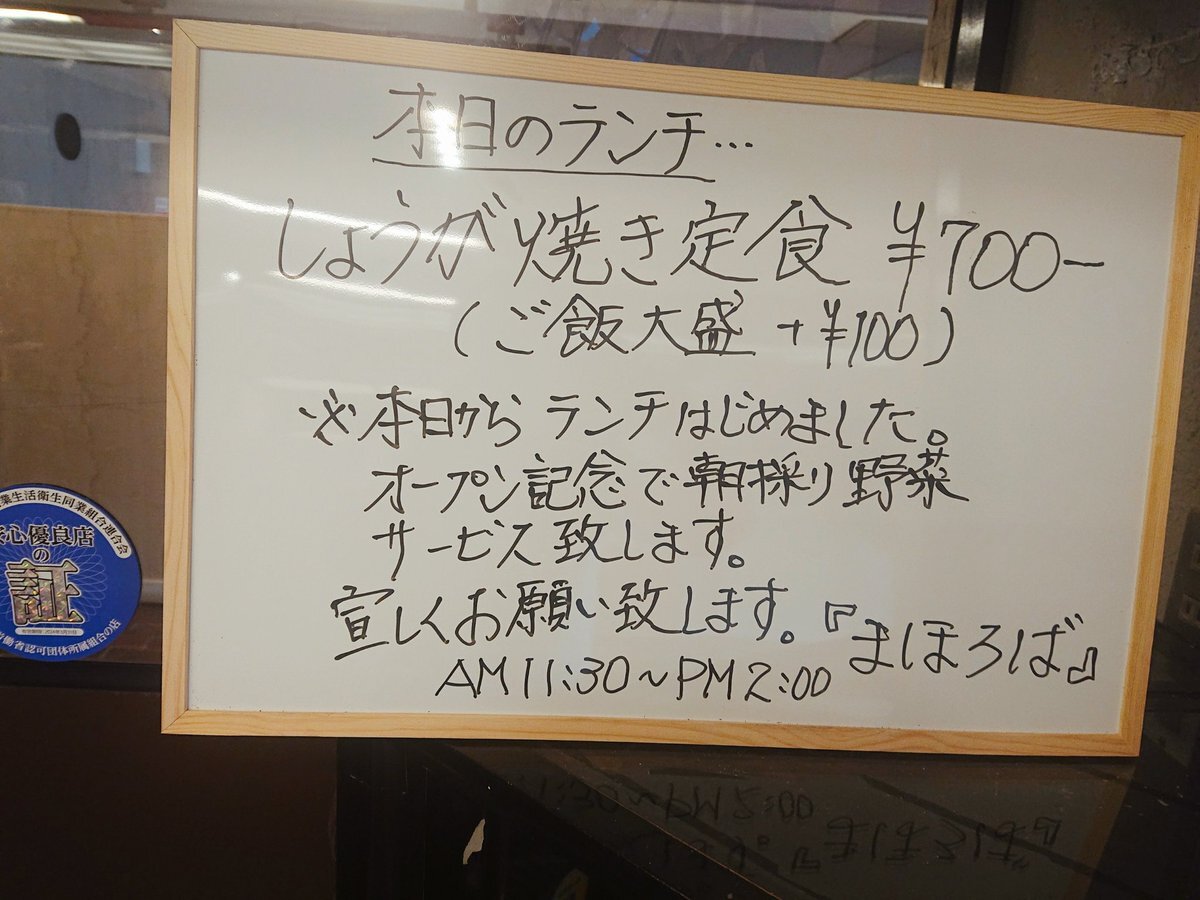 本日のランチ…
しょうが焼き定食 ¥700-
(ご飯大盛 +¥100)
※本日から ランチはじめました。
オープン記念で朝採り野菜
サービス致します。
宜しくお願い致します。
『まほろば』
AM11:30~PM2:00
業生活衛生同業組合連合会
心優良店
の
証
働省認可団体所属組合の店